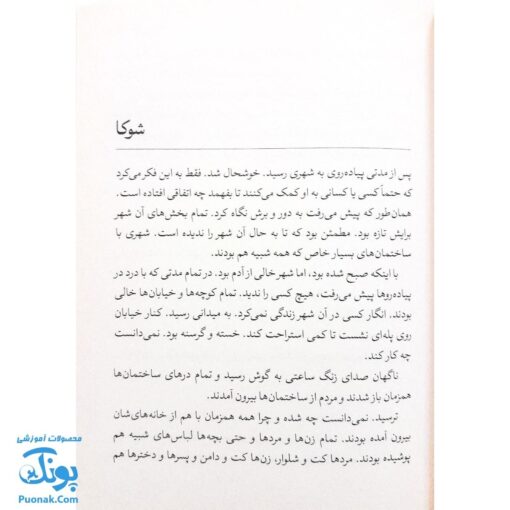 شوکا
پس از مدتی پیاده‌روی به شهری رسید. خوشحال شد. فقط به این فکر می‌کرد
که حتماً کسی یا کسانی به او کمک می‌کنند تا بفهمد چه اتفاقی افتاده است.
همان‌طور که پیش می‌رفت به دور و برش نگاه کرد. تمام بخش‌های آن شهر
برایش تازه بود. مطمئن بود که تا به حال آن شهر را ندیده است. شهری با
ساختمان‌های بسیار خاص که همه شبیه هم بودند.
با اینکه صبح شده بود، اما شهر خالی از آدم بود. در تمام مدتی که با درد در
پیاده‌روها پیش می‌رفت، هیچ کسی را ندید. تمام کوچه‌ها و خیابان‌ها خالی
بودند. انگار کسی در آن شهر زندگی نمی‌کرد. به میدانی رسید. کنار خیابان
روی پله‌ای نشست تا کمی استراحت کند. خسته و گرسنه بود. نمی‌دانست
چه کار کند.
ناگهان صدای زنگ ساعتی به گوش رسید و تمام درهای ساختمان‌ها
همزمان باز شدند و مردم از ساختمان‌ها بیرون آمدند.
ترسید. نمی‌دانست چه شده و چرا همه همزمان با هم از خانه‌های‌شان
بیرون آمده بودند. تمام زن‌ها و مردها و حتی بچه‌ها لباس‌های شبیه هم
پوشیده بودند. مردها کت و شلوار، زن‌ها کت و دامن و پسرها و دخترها هم
محصولات آموزشی
پونک
Puonak.Com